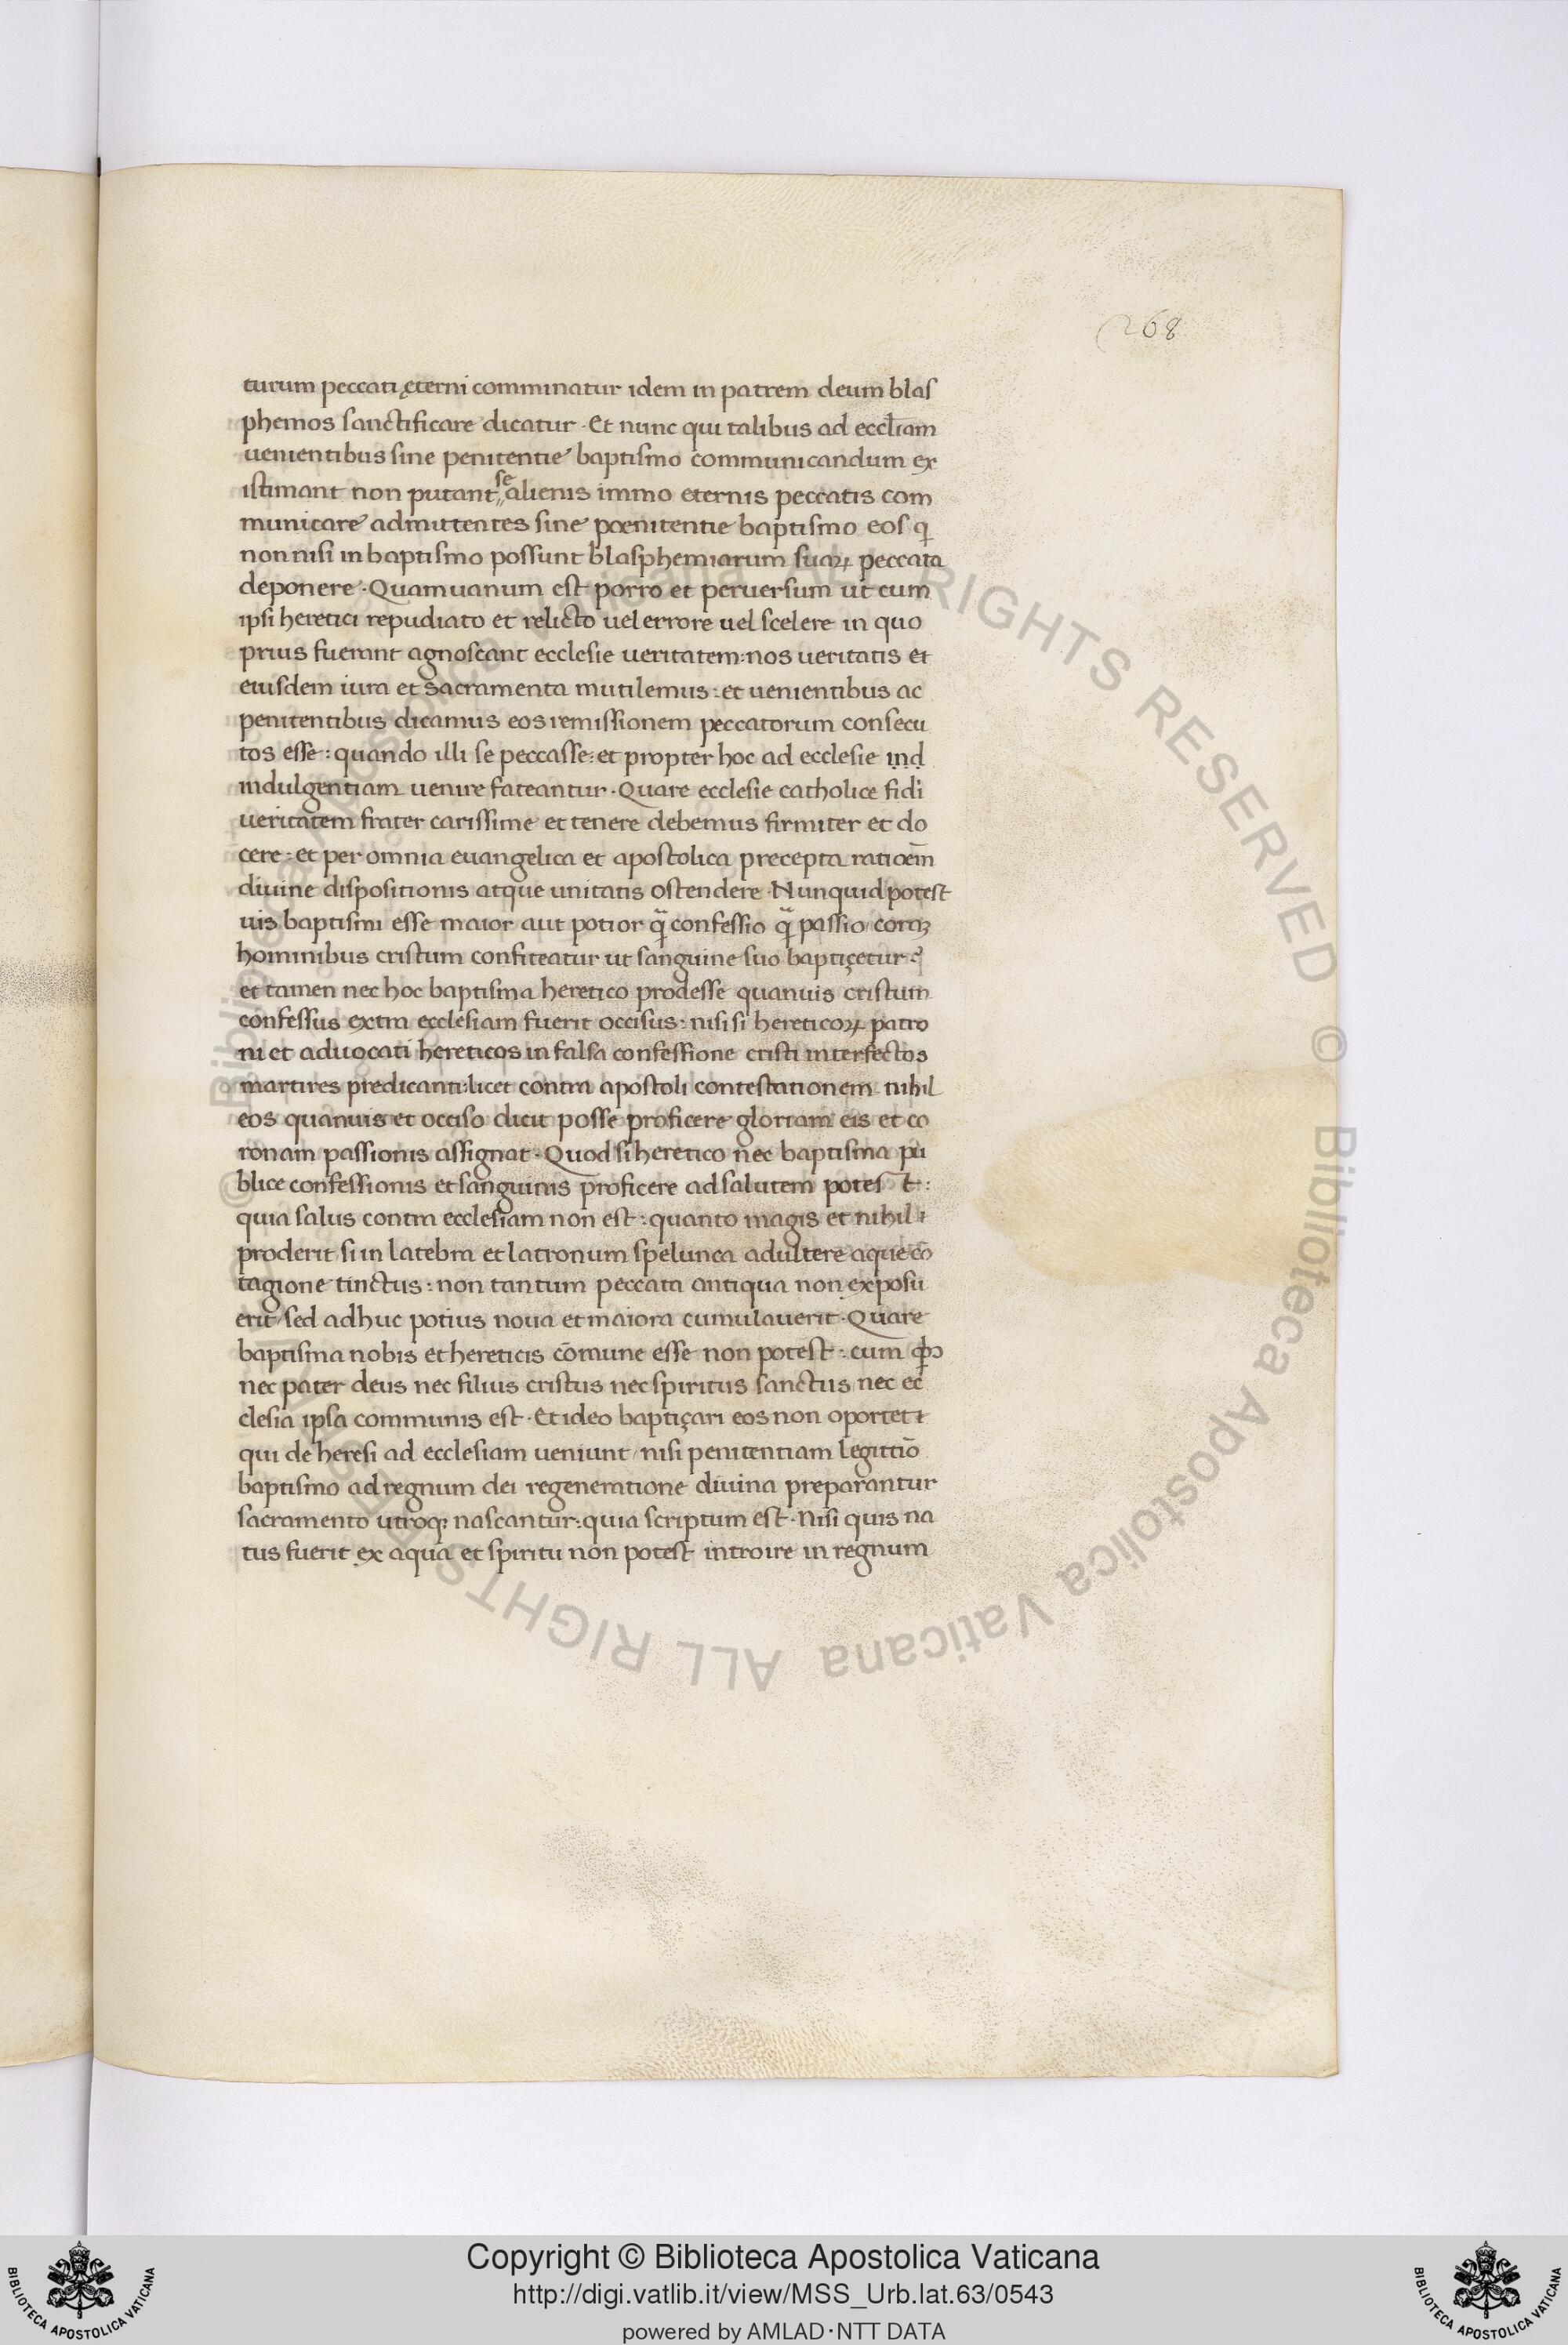 268
turum peccati ęterni comminatur idem in patrem deum blas
phemos sanctificare dicatur · Et nunc qui talibus ad eccl̄iam
uenientibus sine penitentie baptismo communicandum ex
istimant non putant se alienis immo eternis peccatis com
municare admittentes sine poenitentie baptismo eos qͥ
non nisi in baptismo possunt blasphemiarum suaꝝ peccata
deponere · Quam uanum est porro et peruersum ut cum
ipsi heretici repudiato et relicto uel errore uel scelere in quo
prius fuerant agnoscant ecclesie ueritatem: nos ueritatis et
eiusdem iura et sacramenta mutilemus: et uenientibus ac
penitentibus dicamus eos remissionem peccatorum consecu
tos esse: quando illi se peccasse: et propter hoc ad ecclesie ịṇḍ
indulgentiam uenire fateantur · Quare ecclesie catholice fidi
ueritatem frater carissime et tenere debemus firmiter et do
cere: et per omnia euangelica et apostolica precepta ratioem̄
diuine dispositionis atque unitatis ostendere · Nunquid potest
uis baptismi esse maior aut potior qͣ̄ confessio qͣ̄ passio corā
hominibus cristum confiteatur ut sanguine suo baptiçetur:
et tamen nec hoc baptisma heretico prodesse quanuis cristum
confessus extra ecclesiam fuerit occisus: nisi si hereticoꝝ patro
ni et aduocati hereticos in falsa confessione cristi interfectos
martires predicant: licet contra apostoli contestationem nihil
eos quanuis et occiso dicit posse proficere gloriam eis et co
ronam passionis assignat · Quod si heretico nec baptisma pu
blice confessionis et sanguinis proficere ad salutem potest:
quia salus contra ecclesiam non est: quanto magis et nihil i
proderit si in latebra et latronum spelunca adultere aque cō
tagione tinctus: non tantum peccata antiqua non exposu
erit / sed adhuc potius noua et maiora cumulauerit · Quare
baptisma nobis et hereticis cōmune esse non potest: cum qͥbꝰ
nec pater deus nec filius cristus nec spiritus sanctus nec ec
clesia ipsa communis est · Et ideo baptiçari eos non oportet i
qui de heresi ad ecclesiam ueniunt / nisi penitentiam legittīo
baptismo ad regnum dei regeneratione diuina preparantur
sacramento utroqꝫ nascantur: quia scriptum est · Nisi quis na
tus fuerit ex aqua et spiritu non potest introire in regnum
© Biblioteca Apostolica Vaticana ALL RIGHTS RESERVED
© Biblioteca Apostolica Vaticana ALL RIGHTS RESERVED
Copyright © Biblioteca Apostolica Vaticana
http://digi.vatlib.it/view/MSS_Urb.lat.63/0543
powered by AMLAD·NTT DATA
BIBLIOTECA APOSTOLICA VATICANA
BIBLIOTECA APOSTOLICA VATICANA